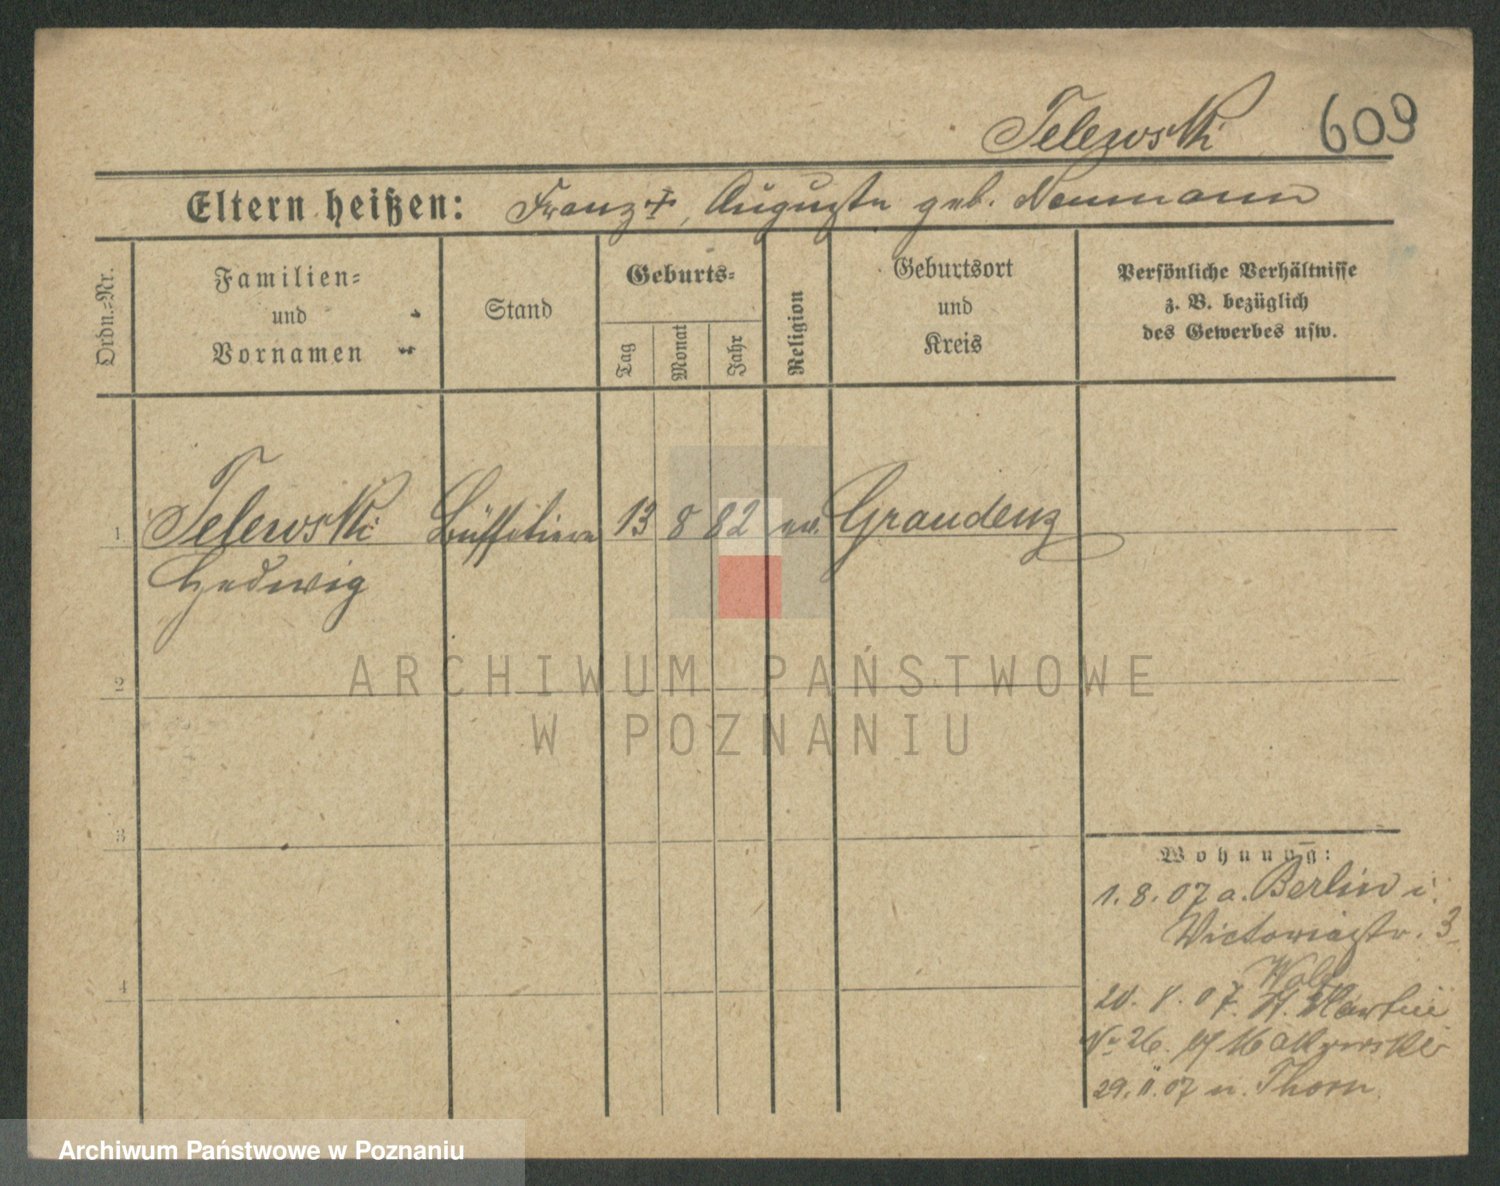 Telewski 609
Eltern heißen: Franz +, Auguste geb. Neumann
Ordn.-Nr.
Familien-
und
Vornamen
Stand
Geburts-
Tag
Monat
Jahr
Religion
Geburtsort
und
Kreis
Persönliche Verhältnisse
z. B. bezüglich
des Gewerbes usw.
1 Telewski Büffetiere 13 8 82 ev. Graudenz
Hedwig
2
3
4
Wohnung:
1.8.07 a. Berlin i.
Victoriastr. 3
20.8.07. St. Martin
No 26. Makowski
29.11.07 n. Thorn
ARCHIWUM PAŃSTWOWE
W POZNANIU
Archiwum Państwowe w Poznaniu